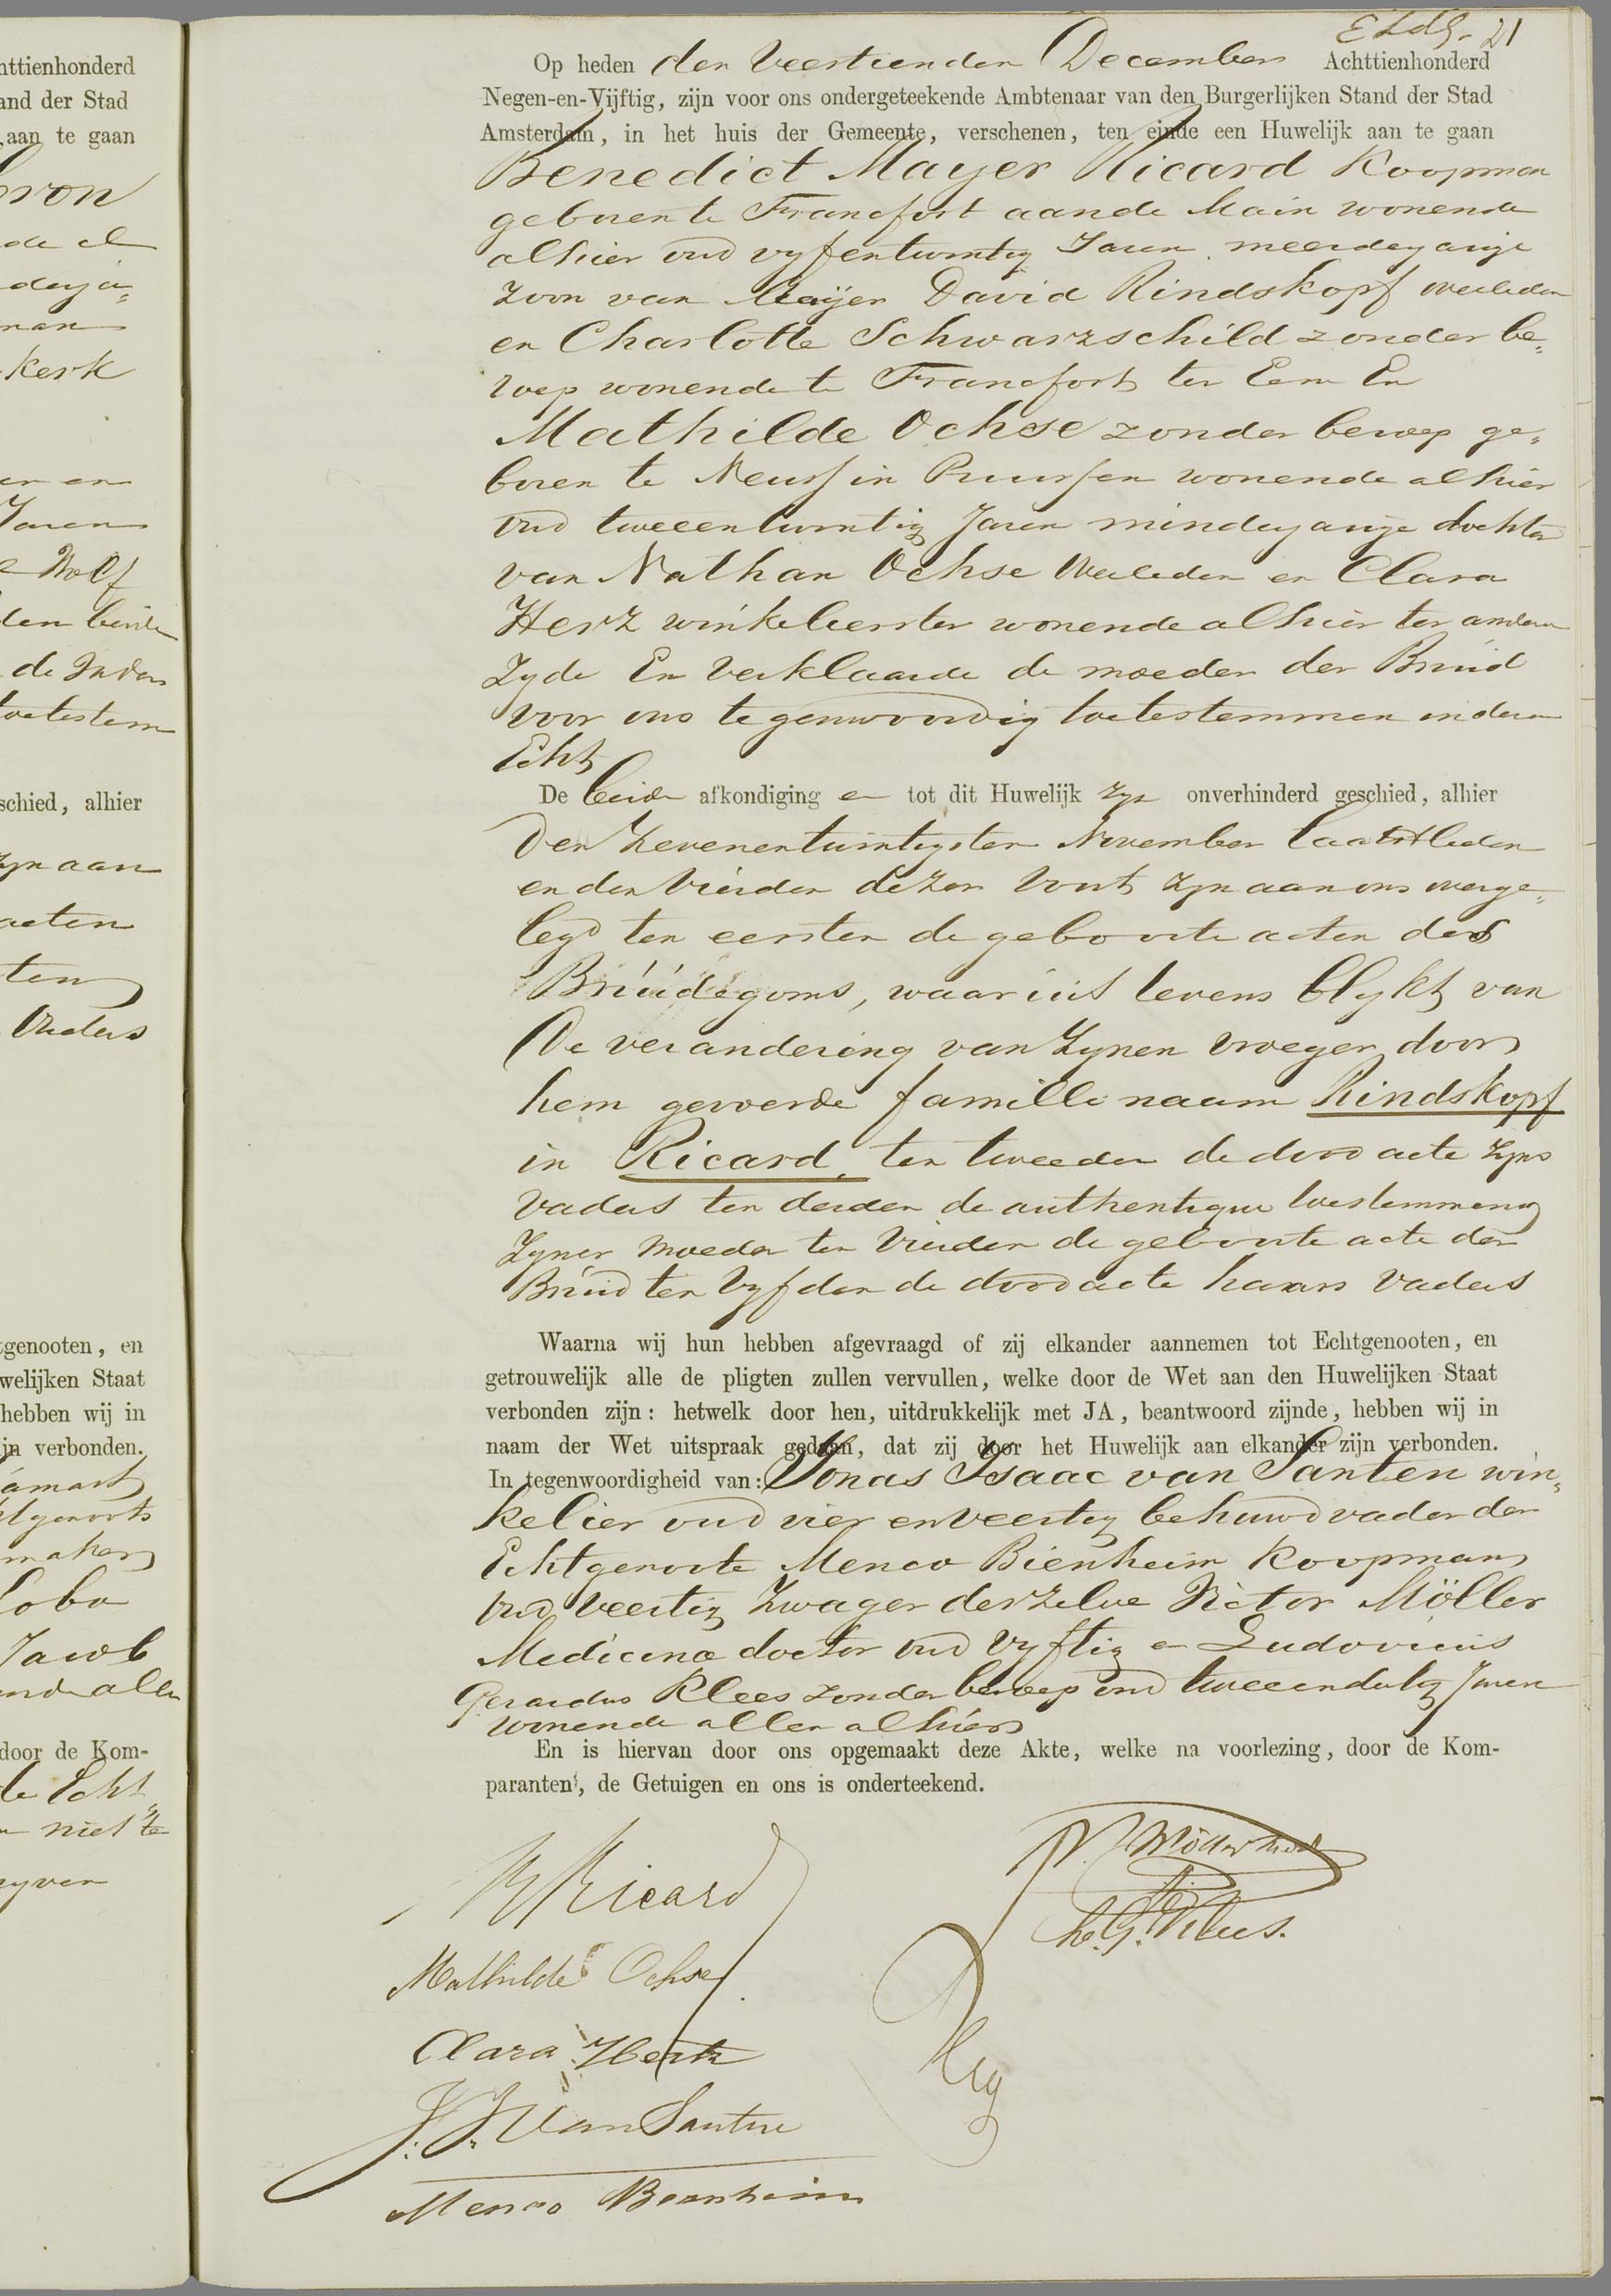 21
Op heden den Veertienden December Achttienhonderd
Negen-en-Vijftig, zijn voor ons ondergeteekende Ambtenaar van den Burgerlijken Stand der Stad
Amsterdam, in het huis der Gemeente, verschenen, ten einde een Huwelijk aan te gaan
Benedict Mayer Ricard Koopman
geboren te Francfort aan de Main wonende
alhier oud vyfentwintig Jaren meerderjarige
zoon van Maÿer David Rindskopf overleden
en Charlotte Schwarzschild zonder be„
roep wonende te Francfort ter Eene En
Mathilde Ochse zonder beroep ge„
boren te Neuss in Pruissen wonende alhier
oud tweeentwintig Jaren minderjarige dochter
van Nathan Ochse Overleden en Clara
Herz winkelierster wonende alhier ter andere
Zyde En Verklaarde de moeder der Bruid
voor ons tegenwoordig toetestemmen in dezen
Echt
De beide afkondiging en tot dit Huwelijk zyn onverhinderd geschied, alhier
Den Zevenentwintigsten November laatstleden
en den Vierden dezer Voorts zyn aan ons overge„
legd ten eersten de geboorte acten des
Bruidegoms, waaruit tevens blykt van
De verandering van Zynen vroeger door
hem gevoerde famille naam Rindskopf
in Ricard, ten tweeden de dood acte zyns
Vaders ten derden de authentique toestemming
Zyner Moeder ten Vierden de geboorte acte der
Bruid ten Vyfden de dood acte haars Vaders
Waarna wij hun hebben afgevraagd of zij elkander aannemen tot Echtgenooten, en
getrouwelijk alle de pligten zullen vervullen, welke door de Wet aan den Huwelijken Staat
verbonden zijn: hetwelk door hen, uitdrukkelijk met JA, beantwoord zijnde, hebben wij in
naam der Wet uitspraak gedaan, dat zij door het Huwelijk aan elkander zijn verbonden.
In tegenwoordigheid van: Jonas Isaac van Santen win„
kelier oud vier en veertig behuwd vader der
Echtgenoote Menco Bienheim Koopman
oud Veertig Zwager derzelve Victor Möller
Medicina doctor oud Vyftig en Ludovicus
Gerardus Klees zonder beroep oud tweeendertig Jaren
wonende allen alhier
En is hiervan door ons opgemaakt deze Akte, welke na voorlezing, door de Kom-
paranten, de Getuigen en ons is onderteekend.
B Ricard
V. Möller
L. G. Klees.
Mathilde Ochse
Clara Hertz
J. I. Van Santen
Menco Bernheim